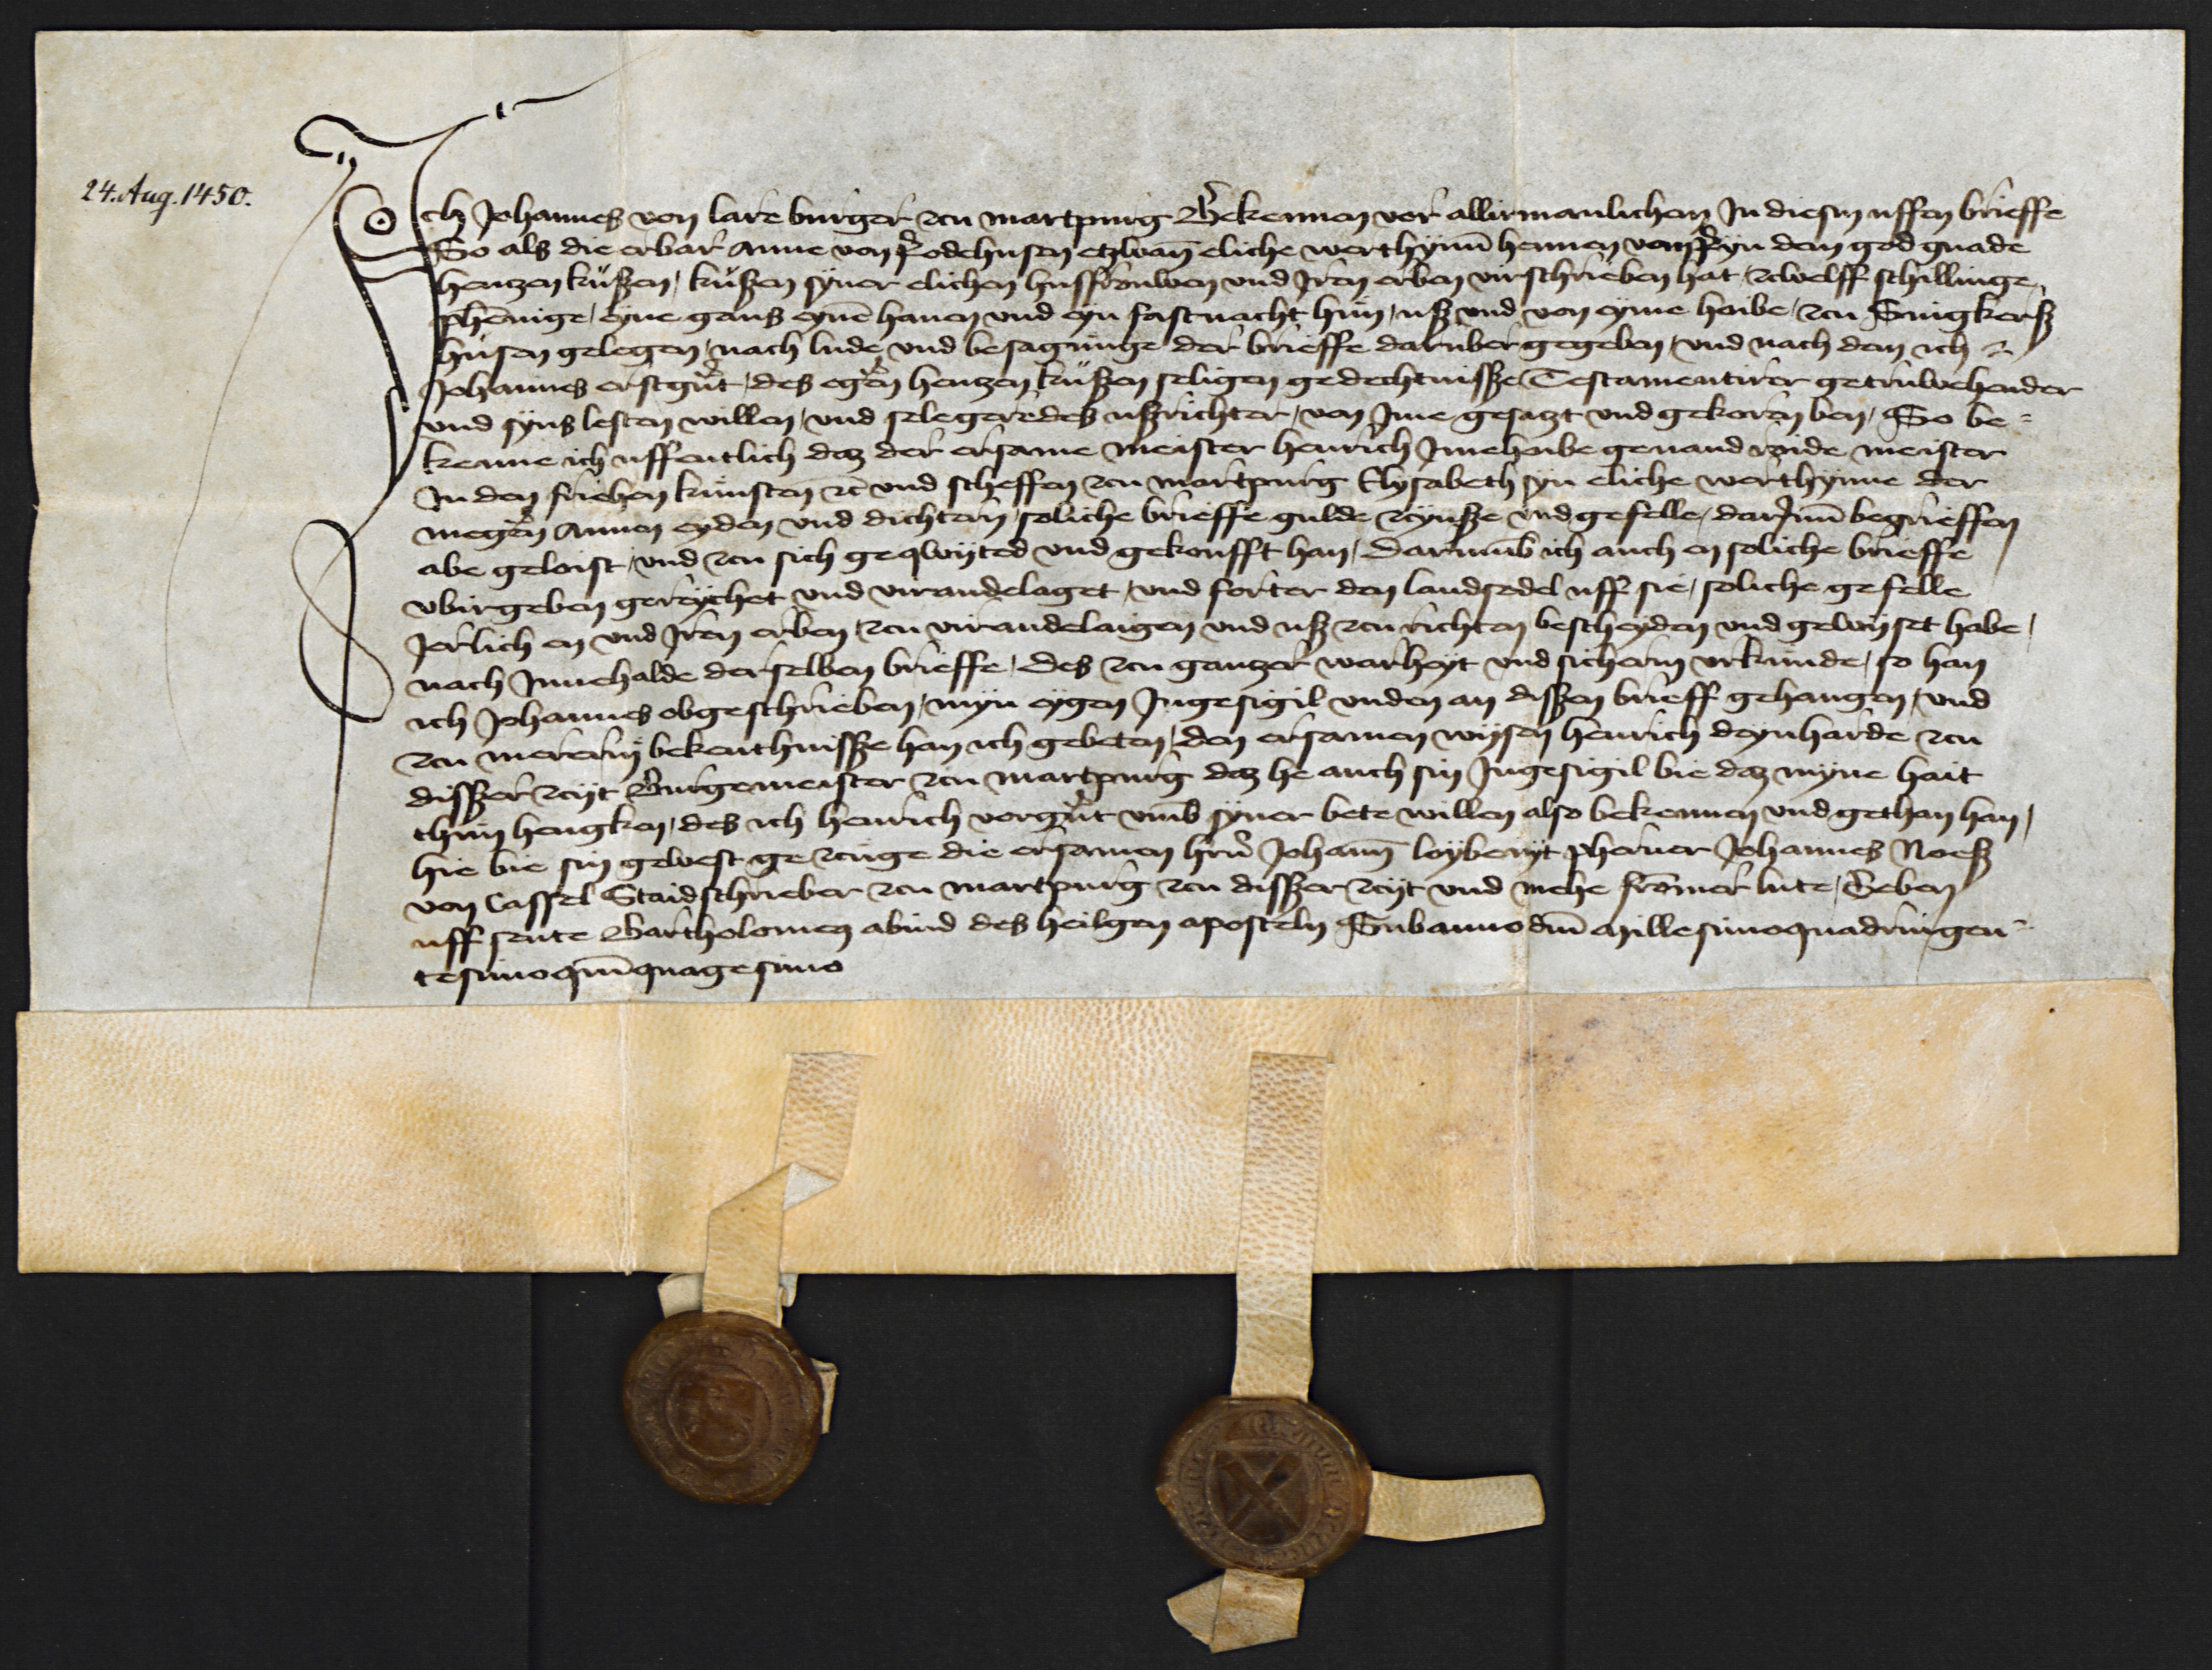 24. Aug. 1450.
Ich Johannes von lare burger zcu martpurg Bekennen vor allirmanlichem In diesm uffen brieffe
So als die erbar Anne von Rodehusen etzwan̄ eliche werthynn̄ hennen von Ryn dem god gnade
hentzen kußen, kußen syner elichen husfrouwen und Iren erben virschrieben hat, zcwelff schillinge
phēnige, eyne gans eynē hanen und eyn fastnacht hun, uß und von eyme hoibe, zcu
husen gelegen, nach lude und besagunge der brieffe darubir gegeben, und nach dem ich
Johannes erstgn̄t, des egn̄ hentzen kußen seligen gedechtnisße Testamentirer getruwehender
und syns lesten willen, und selegeredes ußrichter, von Ime gesatzt und gekoren ben, So be=
kenne ich uffentlich daz der ersame meister henrich Imehoibe genand roide meister
In den frihen kunsten ꝛc̄ und scheffen zcu martpurg Elysabeth syn eliche werthynne der
megn̄ Annen eyden und dichtern, soliche brieffe gulde zcynße und gefelle, dar Inn̄ begrieffen
abe geloist, und zcu sich geqwyted und gekoufft han, Darumb ich auch en soliche brieffe
ubirgeben gereychet und virandelaget, und forter den landsedel uff sie, soliche gefelle
Jerlich en und Iren erben, zcu virandelaigen und uß zcu richten bescheyden und gewyset habe,
nach Innehalde derselben brieffe, des zcu gantzer warheyt und sicherm urkunde, so han
ich Johannes obgeschrieben, myn eygen Ingesigil unden an dißen brieff gehangen, und
zcu merern bekenthnisße han ich gebeten, den ersamen wysen henrich deynharde zcu
disßer zcyt Burgemeister zcu martpurg daz he auch sin Ingesigil bie daz myne hait
thun hengken, des ich henrich vorgn̄t umb syner bete willen also bekennen und gethan han,
hie bie sin gewest gezcuge die ersamen hrn̄ Johann̄ pherner Johannes Noeß
von Cassel Staidschrieber zcu martpurg zcu disßer zcyt und mehe fromer lute, Geben
uff sente Bartholomeus abind des heilgen aposteln Sub anno dn̄i Millesimoquadringen-
tesimoquīquagesimo